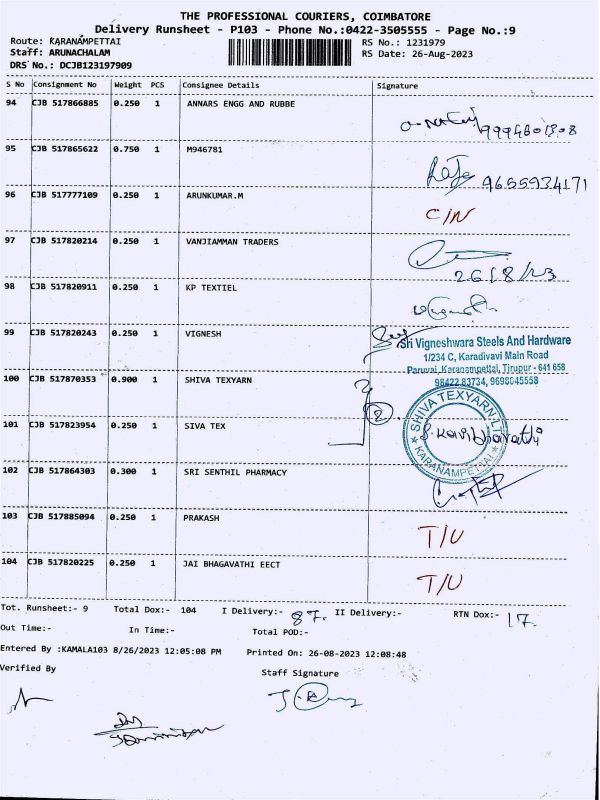 THE PROFESSIONAL COURIERS, COIMBATORE
Delivery Runsheet - P103 - Phone No.:0422-3505555 - Page No.:9
Route: KARANAMPETTAI
RS No.: 1231979
Staff: ARUNACHALAM
RS Date: 26-Aug-2023
DRS No.: DCJB123197909
S No Consignment No Weight PCS Consignee Details Signature
94 CJB 517866885 0.250 1 ANNARS ENGG AND RUBBE
9994601308
95 CJB 517865622 0.750 1 M946781
Raja 9655934171
96 CJB 517777109 0.250 1 ARUNKUMAR.M
C/N
97 CJB 517820214 0.250 1 VANJIAMMAN TRADERS
26/8/23
98 CJB 517820911 0.250 1 KP TEXTIEL
99 CJB 517820243 0.250 1 VIGNESH
Sri Vigneshwara Steels And Hardware
1/234 C, Karadivavi Main Road
Paruvai, Karanampettai, Tirupur - 641 658
98422 83734, 9698045558
100 CJB 517870353 0.900 1 SHIVA TEXYARN
2.
SHIVA TEXYARN LTD
KARANAMPETTAI
101 CJB 517823954 0.250 1 SIVA TEX
S. Kavibharathi
102 CJB 517864303 0.300 1 SRI SENTHIL PHARMACY
103 CJB 517885094 0.250 1 PRAKASH
T/U
104 CJB 517820225 0.250 1 JAI BHAGAVATHI EECT
T/U
Tot. Runsheet:- 9 Total Dox:- 104 I Delivery:- 87. II Delivery:- RTN Dox:- 17.
Out Time:- In Time:- Total POD:-
Entered By :KAMALA103 8/26/2023 12:05:08 PM Printed On: 26-08-2023 12:08:48
Verified By
Staff Signature